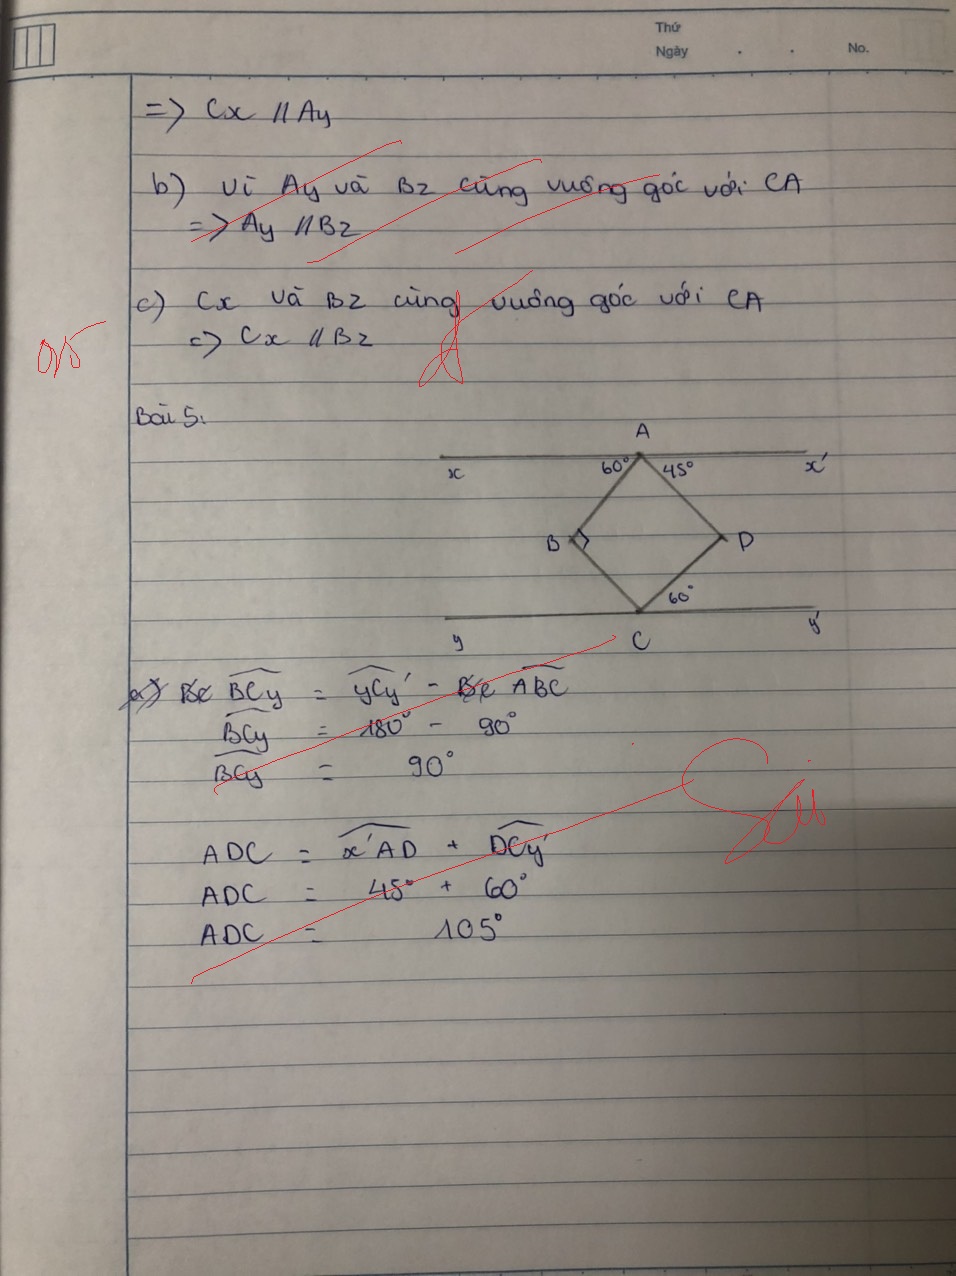 Thứ
Ngày . . No.
=> Cx // Ay
b) Vì Ay và Bz cùng vuông góc với CA
=> Ay // Bz
c) Cx và Bz cùng vuông góc với CA
=> Cx // Bz
0,5
Bài 5:
A
x 60° 45° x'
B D
60°
y C y'
a) BCy = yCy' - ABC
BCy = 180° - 90°
BCy = 90°
Sai
ADC = x'AD + DCy'
ADC = 45° + 60°
ADC = 105°